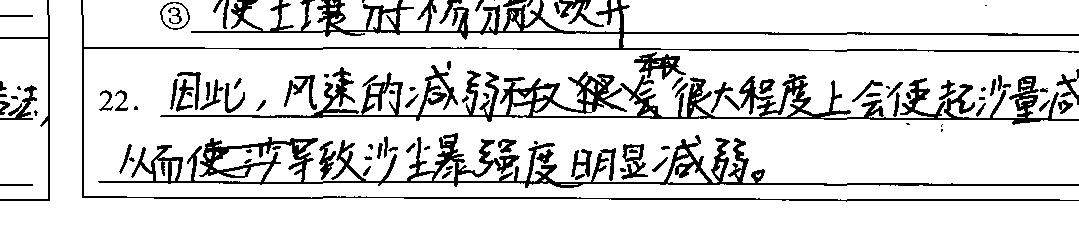 ③ 使土壤
22. 因此,风速的减弱不仅会很大程度上会使起沙量减
法,
从而导致沙尘暴强度明显减弱。